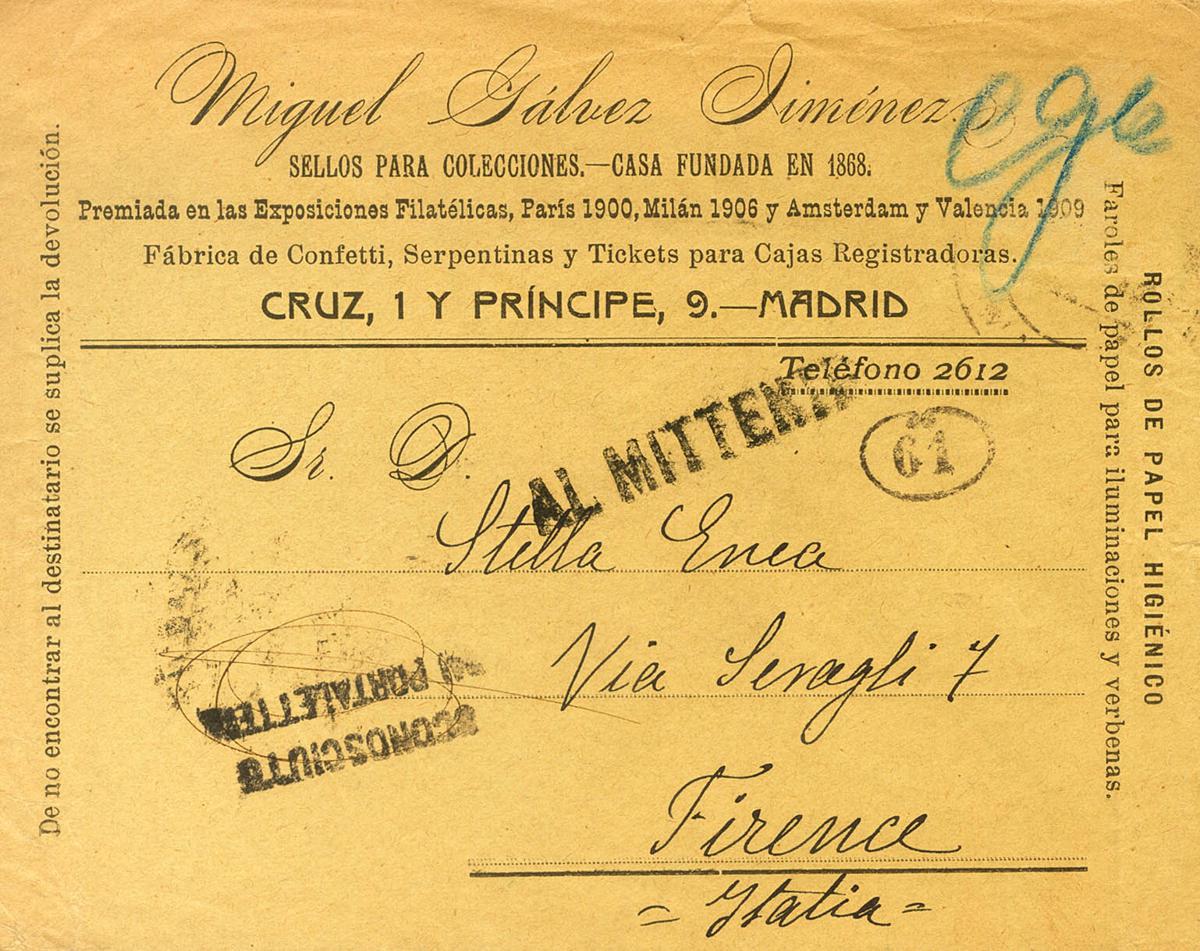 Miguel Gálvez Jiménez.
SELLOS PARA COLECCIONES.—CASA FUNDADA EN 1868.
Premiada en las Exposiciones Filatélicas, París 1900, Milán 1906 y Amsterdam y Valencia 1909
Fábrica de Confetti, Serpentinas y Tickets para Cajas Registradoras.
CRUZ, 1 Y PRÍNCIPE, 9.—MADRID
Teléfono 2612
De no encontrar al destinatario se suplica la devolución.
ROLLOS DE PAPEL HIGIÉNICO
Faroles de papel para iluminaciones y verbenas.
AL MITTENTE
61
Sr. D.
Stella Enea
Via Seragli 7
Firence
= Italia =
SCONOSCIUTO
AI PORTALETTERE